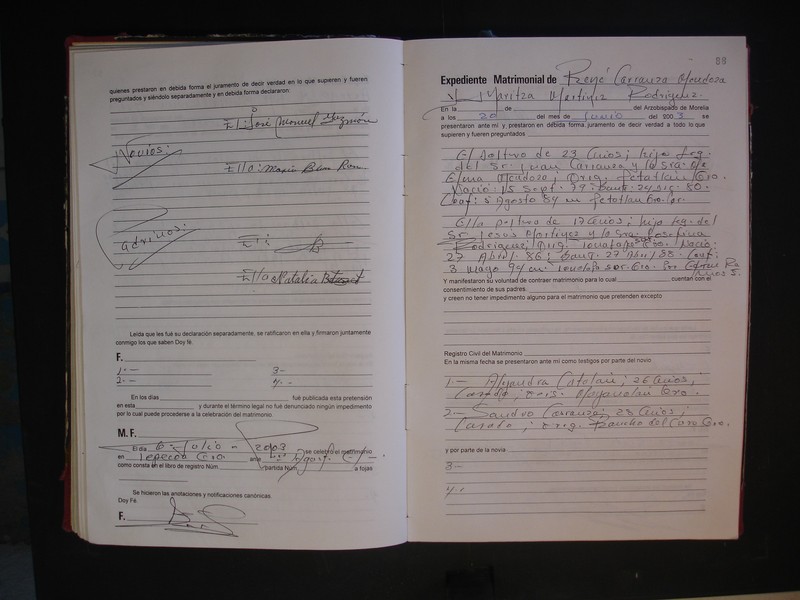 quienes prestaron en debida forma el juramento de decir verdad en lo que supieren y fueren
preguntados y siéndolo separadamente y en debida forma declararon:
El: José Manuel Guzmán
Novios:
Ella:
Padrinos:
El:
Ella: Natalia
Leída que les fué su declaración separadamente, se ratificaron en ella y firmaron juntamente
conmigo los que saben Doy fé.
F.
1.- 3-
2.- 4.-
En los días fué publicada esta pretensión
en esta y durante el término legal no fué denunciado ningún impedimento
por lo cual puede procederse a la celebración del matrimonio.
M. F.
El día 6 Julio - 2003 se celebró el matrimonio
en ante
como consta en el libro de registro Núm. partida Núm. a fojas
Se hicieron las anotaciones y notificaciones canónicas.
Doy Fé.
F.
88
Expediente Matrimonial de René Carranza Mendoza
y Maritza Martinez Rodriguez.
En la de del Arzobispado de Morelia
a los 20 del mes de Junio del 2003. se
presentaron ante mí y prestaron en debida forma juramento de decir verdad a todo lo que
supieren y fueren preguntados
El Soltero de 23 años; hijo leg.
del Sr. Juan Carranza y la Sra. De
Elma Mendoza; Orig. Petatlan Gro.
Nació: 15 Sept. 79; Baut. 24 Dic. 80.
Conf: 5 Agosto 84 en Petatlan Gro.
Ella soltera de 17 años; hija leg. del
Sr. Jesus Martinez y la Sra. Josefina
Rodriguez; Orig. Gro. Nació:
27 Abril. 86; Baut. 27 Abril 88. Conf:
3 Mayo 94 en Gro. por
Y manifestaron su voluntad de contraer matrimonio para lo cual cuentan con el
consentimiento de sus padres.
y creen no tener impedimento alguno para el matrimonio que pretenden excepto
Registro Civil del Matrimonio
En la misma fecha se presentaron ante mí como testigos por parte del novio.
1.- Alejandra Catalan; 26 años;
Orig. Gro.
2- Sandro Carranza; 23 años;
Casado; Orig. Rancho del Gro.
y por parte de la novia
3-
4.-